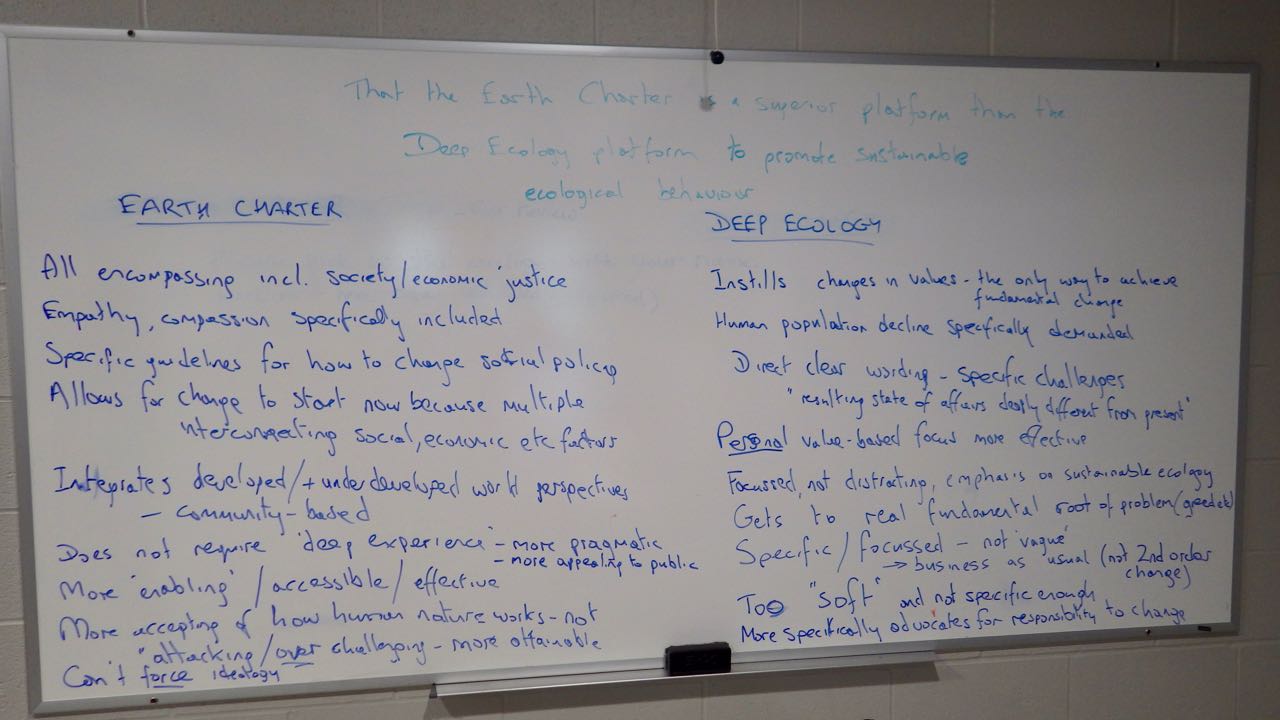 That the Earth Charter is a superior platform than the
Deep Ecology platform to promote sustainable
ecological behaviour
EARTH CHARTER
All encompassing incl. society/economic justice
Empathy, compassion specifically included
Specific guidelines for how to change social policy
Allows for change to start now because multiple
interconnecting social, economic etc factors
Integrates developed/+underdeveloped world perspectives
– community-based
Does not require "deep experience" – more pragmatic
– more appealing to public
More "enabling" / accessible / effective
More accepting of how human nature works – not
"attacking/over challenging – more attainable
Can't force ideology
DEEP ECOLOGY
Instills changes in values – the only way to achieve
fundamental change
Human population decline specifically demanded
Direct clear wording – specific challenges
"resulting state of affairs deeply different from present"
Personal value-based focus more effective
Focussed, not distracting, emphasis on sustainable ecology
Gets to real fundamental root of problem (greed etc)
Specific / focussed – not "vague"
→ business as usual (not 2nd order
change)
Too "soft" and not specific enough
More specifically advocates for responsibility to change